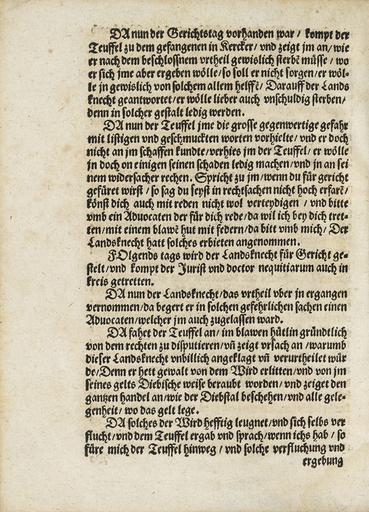 DA nun der Gerichtstag vorhanden war / kompt der
Teuffel zu dem gefangenen in Kercker / vnd zeigt jm an / wie
er nach dem beschlossnem vrtheil gewislich sterbē müsse / wo
er sich jme aber ergeben wölle / so soll er nicht sorgen / er wöl-
le jn gewislich von solchem allem helffē / Darauff der Lands
knecht geantwortet / er wölle lieber auch vnschuldig sterben /
denn in solcher gestalt ledig werden.
DA nun der Teuffel jme die grosse gegenwertige gefahr
mit listigen vnd geschmuckten worten vorhielte / vnd er doch
nicht an jm schaffen kundte / verhies jm der Teuffel / er wölle
jn doch on einigen seinen schaden ledig machen / vnd jn an sei
nem widersacher rechen. Spricht zu jm / wenn du für gericht
gefüret wirst / so sag du seyst in rechtsachen nicht hoch erfarē /
könst dich auch mit reden nicht wol verteydigen / vnd bitte
vmb ein Aduocaten der für dich rede / da wil ich bey dich tret-
ten / mit einem blawē hut mit federn / da bitt vmb mich / Der
Landsknecht hatt solches erbieten angenommen.
FOlgends tags wird der Landsknecht für Gericht ge-
stelt / vnd kompt der Jurist vnd doctor nequitiarum auch in
kreis getretten.
DA nun der Landsknecht / das vrtheil vber jn ergangen
vernommen / da begert er in solchen gefehrlichen sachen einen
Aduocaten / welcher jm auch zugelassen ward.
DA fahet der Teuffel an / im blawen hütlin gründtlich
von dem rechten zu disputieren / vñ zeigt vrsach an / warumb
dieser Landsknecht vnbillich angeklagt vñ verurtheilet wür
de / Denn er hett gewalt von dem Wird erlitten / vnd von jm
seines gelts Diebische weise beraubt worden / vnd zeiget den
gantzen handel an / wie der Diebstal beschehen / vnd alle gele-
genheit / wo das gelt lege.
DA solches der Wird hefftig leugnet / vnd sich selbs ver
flucht / vnd dem Teuffel ergab vnd sprach / wenn ichs hab / so
füre mich der Teuffel hinweg / vnd solche verfluchung vnd
ergebung